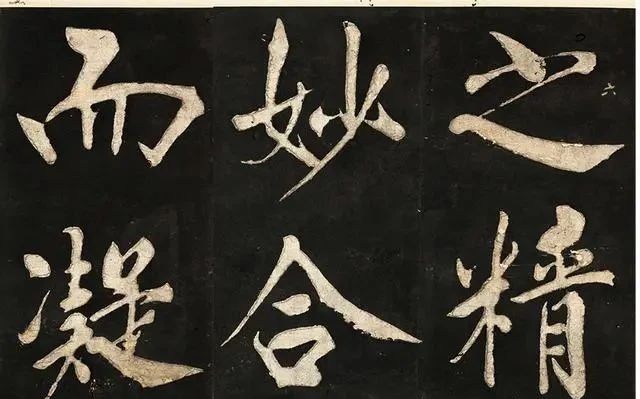 之精
妙合
而凝